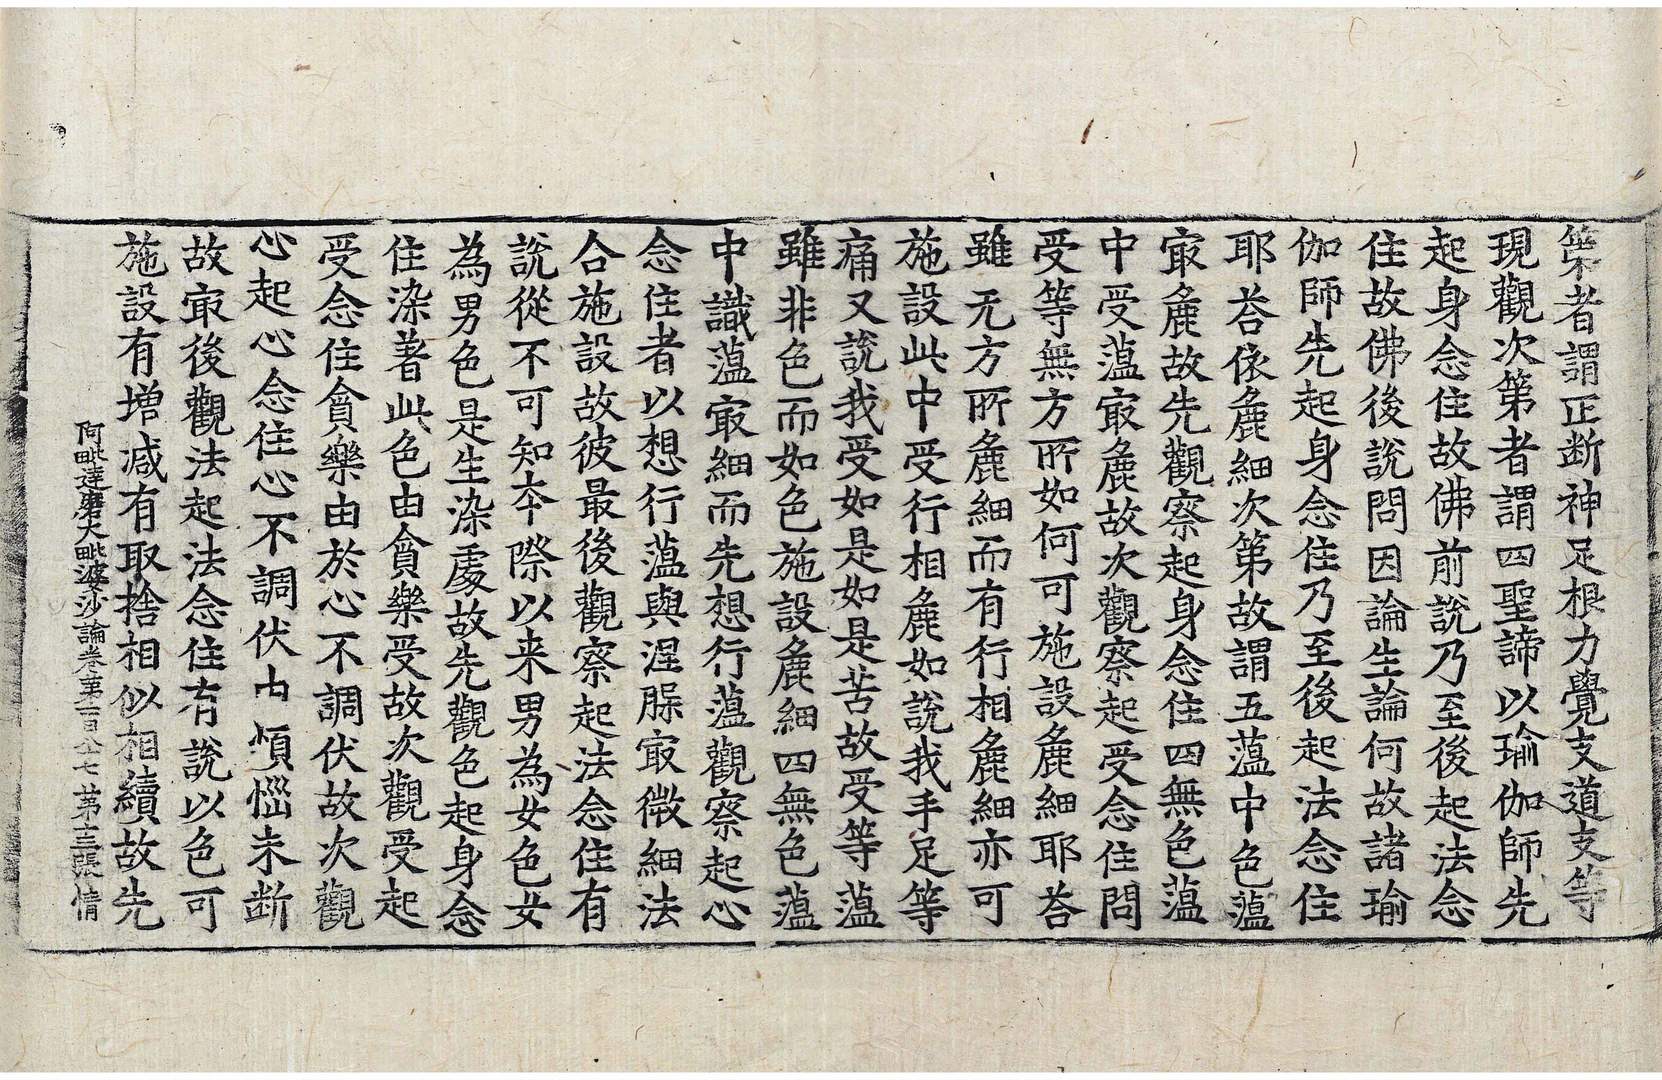 第者謂正断神足根力覺支道支等
現觀次第者謂四聖諦以瑜伽師先
起身念住故佛前說乃至後起法念
住故佛後說問因論生論何故諸瑜
伽師先起身念住乃至後起法念住
耶荅依麁細次第故謂五蘊中色蘊
㝡麁故先觀察起身念住四無色蘊
中受蘊㝡麁故次觀察起受念住問
受等無方所如何可施設麁細耶荅
雖无方所麁細而有行相麁細亦可
施設此中受行相麁如說我手足等
痛又說我受如是如是苦故受等蘊
雖非色而如色施設麁細四無色蘊
中識蘊㝡細而先想行蘊觀察起心
念住者以想行蘊與涅槃㝡微細法
合施設故彼最後觀察起法念住有
說從不可知夲際以来男為女色女
為男色是生染處故先觀色起身念
住染著此色由貪樂受故次觀受起
受念住貪樂由於心不調伏故次觀
心起心念住心不調伏由煩惱未断
故㝡後觀法起法念住有說以色可
施設有増减有取捨相似相續故先
阿毗達磨大毗婆沙論卷第一百八七 第十三張 情